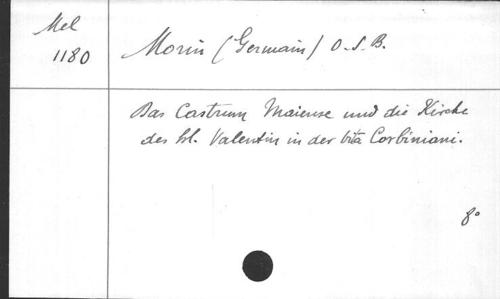 Mel
1180
Morin (Germain) O.S.B.
Das Castrum Maiense und die Kirche
des hl. Valentin in der Vita Corbiniani.
8°